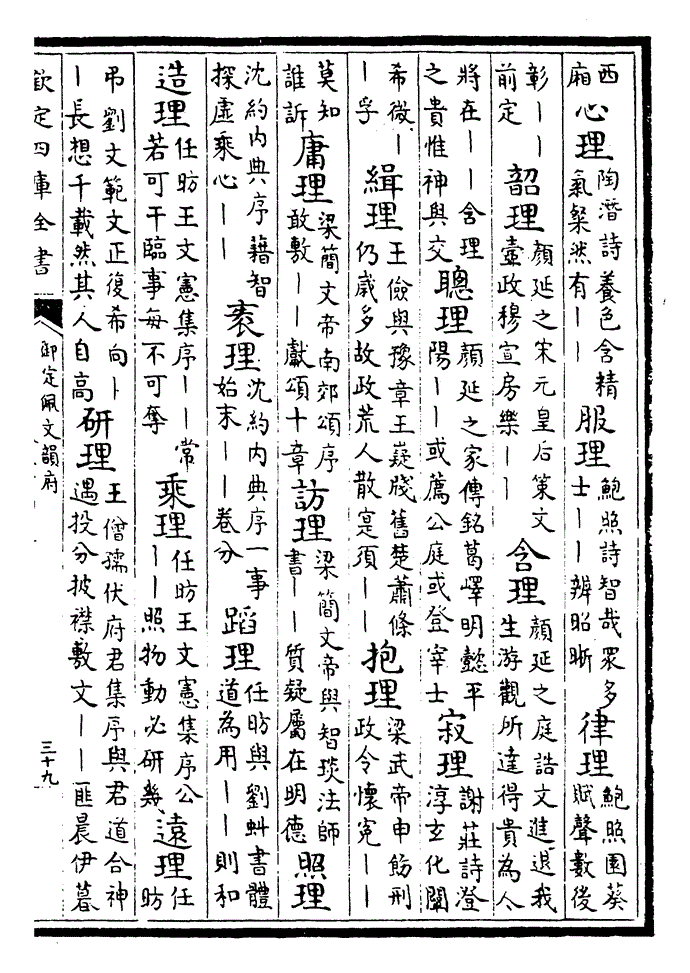 西廂 心理 陶潛詩養色含精氣粲然有丨丨 服理 鮑照詩智哉眾多士丨丨辨昭晰 律理 鮑照園葵賦聲數後
彰丨丨前定 韶理 顏延之宋元皇后策文壼政穆宣房樂丨丨 含理 顏延之庭誥文進退我生游觀所達得貴為人
將在丨丨含理之貴惟神與交 聰理 顏延之家傳銘葛嶧明懿平陽丨丨或薦公庭或登宰士 寂理 謝莊詩澄淳玄化闡
希微丨丨孚 緝理 王儉與豫章王嶷牋舊楚蕭條仍歲多故政荒人散寔須丨丨 抱理 梁武帝申飭刑政令懷冤丨丨
莫知誰訴 庸理 梁簡文帝南郊頌序敢敷丨丨獻頌十章 訪理 梁簡文帝與智琰法師書丨丨質疑屬在明德 照理
沈約內典序藉智探虛乘心丨丨 袠理 沈約內典序一事始末丨丨卷分 蹈理 任昉與劉虯書體道為用丨丨則和
造理 任昉王文憲集序丨丨常若可干臨事每不可奪 乘理 任昉王文憲集序公丨丨照物動必研幾 遠理 任昉
弔劉文範文正復希向丨丨長想千載然其人自高 研理 王僧孺伏府君集序與君道合神遇投分披襟敷文丨丨匪晨伊暮
欽定四庫全書
御定佩文韻府
三十九